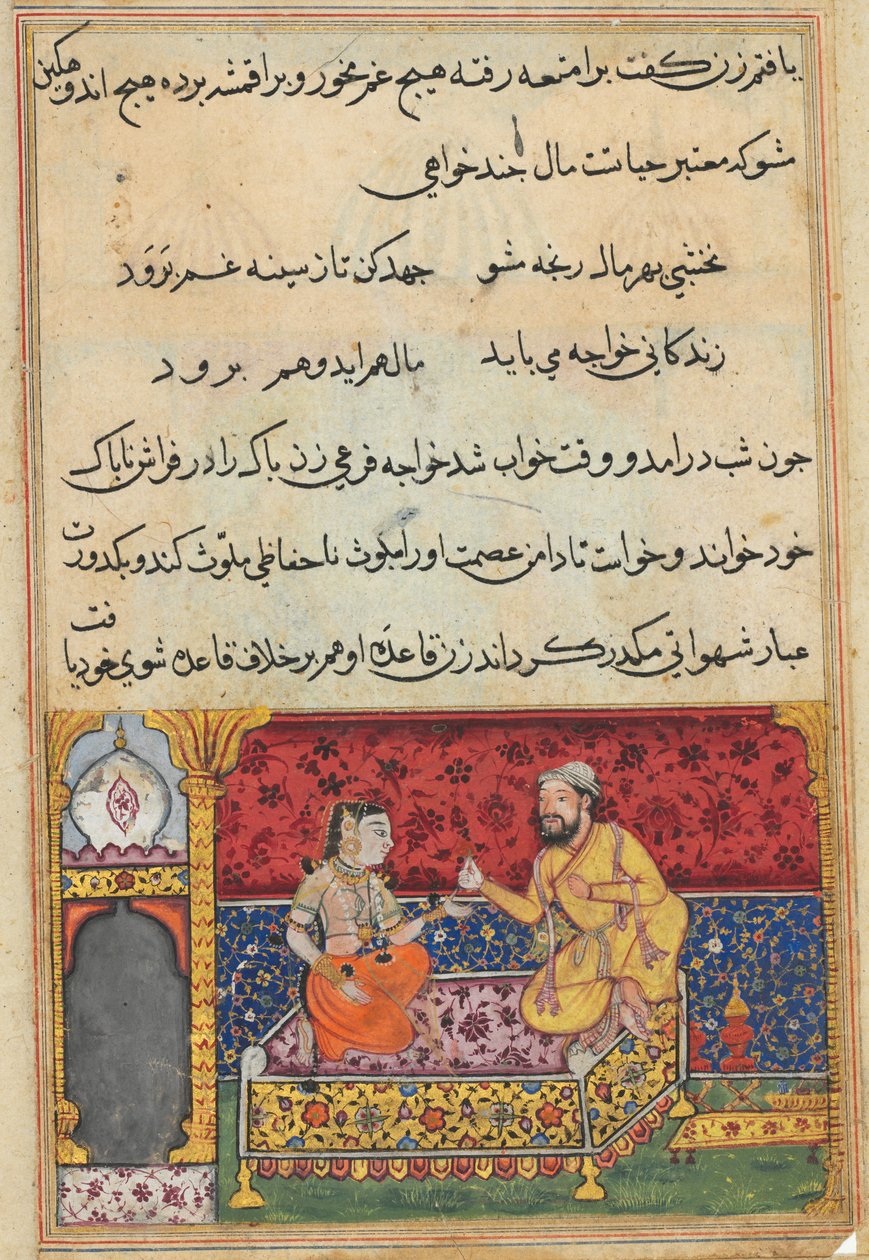 یافتم زن کفت بر امتعه رفته هیچ غم مخور و بر اقمشه برده هیچ اندوهکین
مشو که معتبر حیاتست مال چند خواهی
نخشبی بهر مال رنجه مشو جهد کن تا ز سینه غم برَوَد
زندکانی خواجه می باید مال هم اید و هم برود
جون شب در امد و وقت خواب شد خواجه فرعی زن باک را در فراش ناباک
خود خواند و خواست تا دامن عصمت او را بلوث ناحفاظی ملوّث کند و بکدورت
عبار شهواتی مکدر کرداند زن قاعدَه او هم بر خلاف قاعده شوی خود یافت